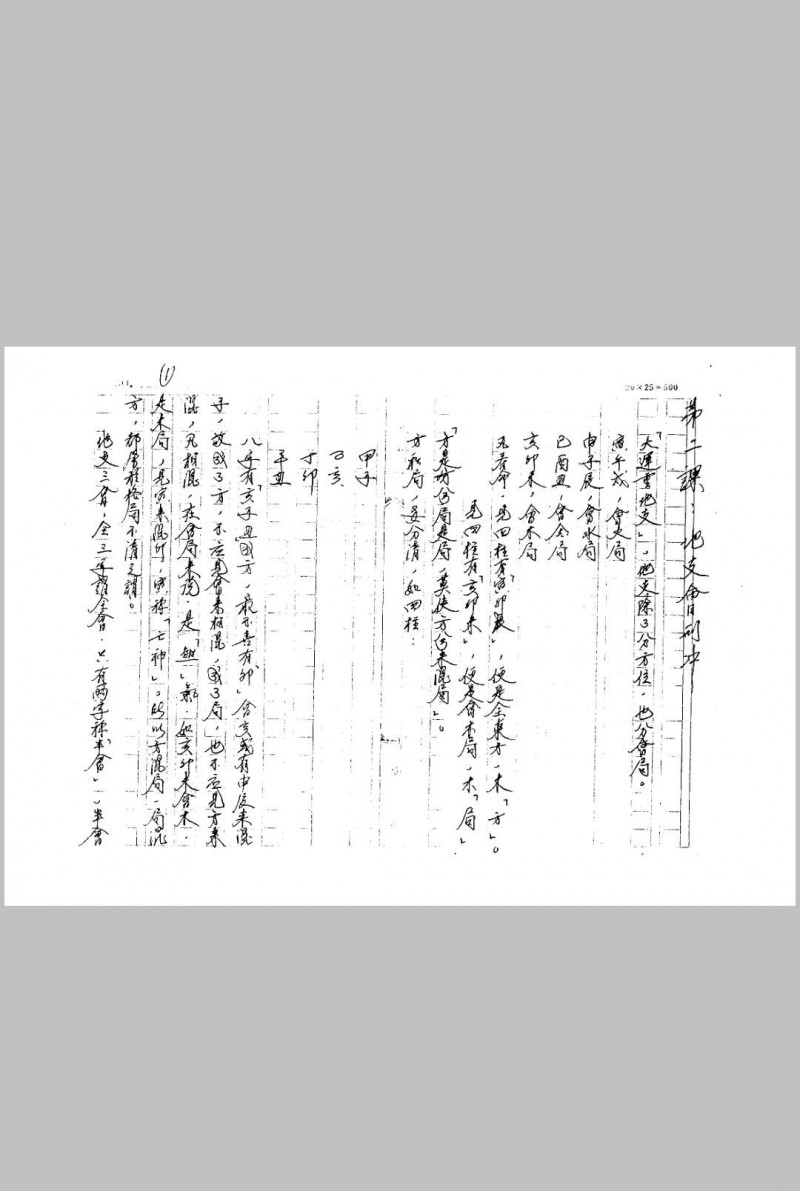 20×25=500
第二課：地支會合刑冲
「大運重地支」，地支除了分方位，也分會局。
寅午戌，會火局
申子辰，會水局
巳酉丑，會金局
亥卯未，會木局
凡看命，見四柱有「寅卯辰」，便是全東方，木「方」。
見四柱有「亥卯未」，便是會木局，木「局」
「方是方兮局是局，莫使方兮來混局」。
方和局，要分清，如四柱：
甲子
乙亥
丁卯
辛丑
八字有「亥子丑」國方，最不喜有「卯」會亥或有申辰來混
子，故成了方，不應見會來相混，成了局，也不應見方來
混，凡相混，在會局來說，是「」。如亥卯未會木，
是木局，見寅來混卯，寅稱「亡神」。所以方混局，局混
方，都屬於格局不清之謂。
地支三會，全三字謂全會，只有兩字稱「半會」，半會
(1)